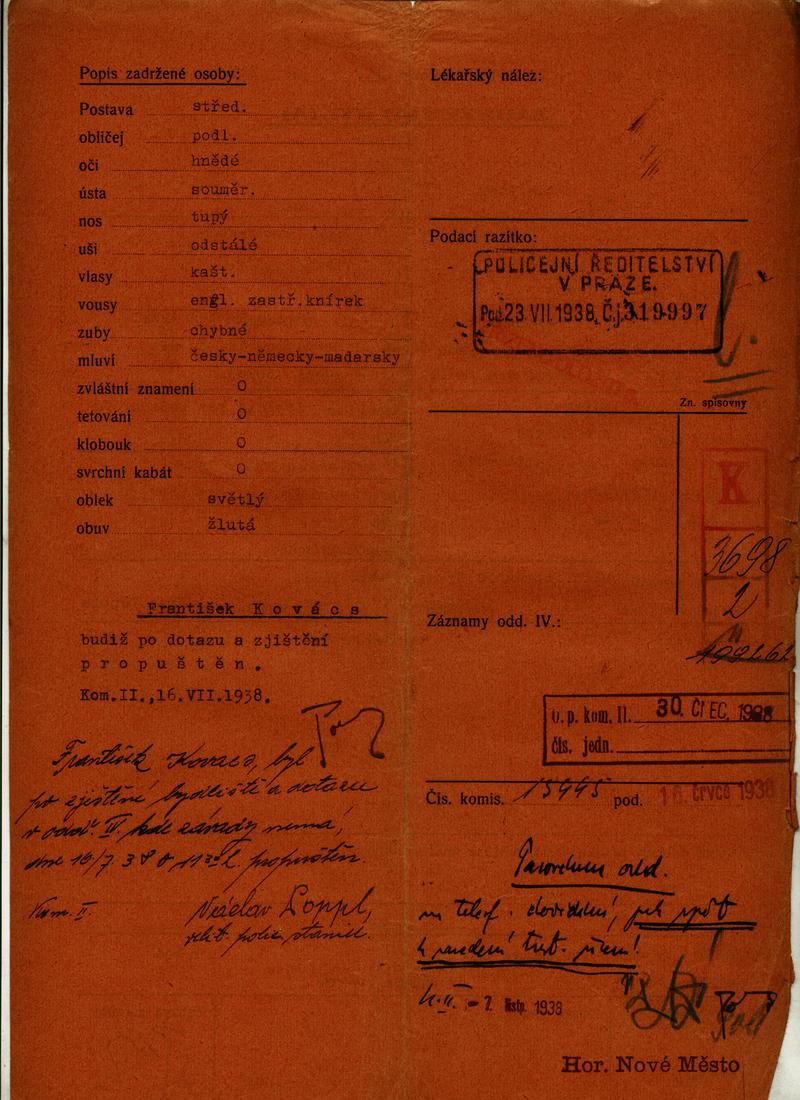 Popis zadržené osoby:
Postava střed.
obličej podl.
oči hnědé
ústa souměr.
nos tupý
uši odstálé
vlasy kašt.
vousy engl. zastř.knírek
zuby chybné
mluví česky-německy-madarsky
zvláštní znamení 0
tetování 0
klobouk 0
svrchní kabát 0
oblek světlý
obuv žlutá
František Kovács
budiž po dotazu a zjištění
propuštěn.
Kom.II.,16.VII.1938.
František Kovacs, byl
po zjištění bydliště a dotazu
v odd. IV. kde závady nemá,
dne 16/7 38 o 11 30 h. propuštěn.
Kom. II.
Lékařský nález:
Podací razítko:
POLICEJNÍ ŘEDITELSTVÍ
V PRAZE.
Pod. 23.VII.1938, Č.j. 319997
Zn. spisovny
K
3698
2
Záznamy odd. IV.:
o. p. kom. II. 30. ČEC. 1938
čís. jedn.
Čís. komis. 15445 pod. 16. července 1938
odd.
K. II. - 7. listp. 1938
Hor. Nové Město